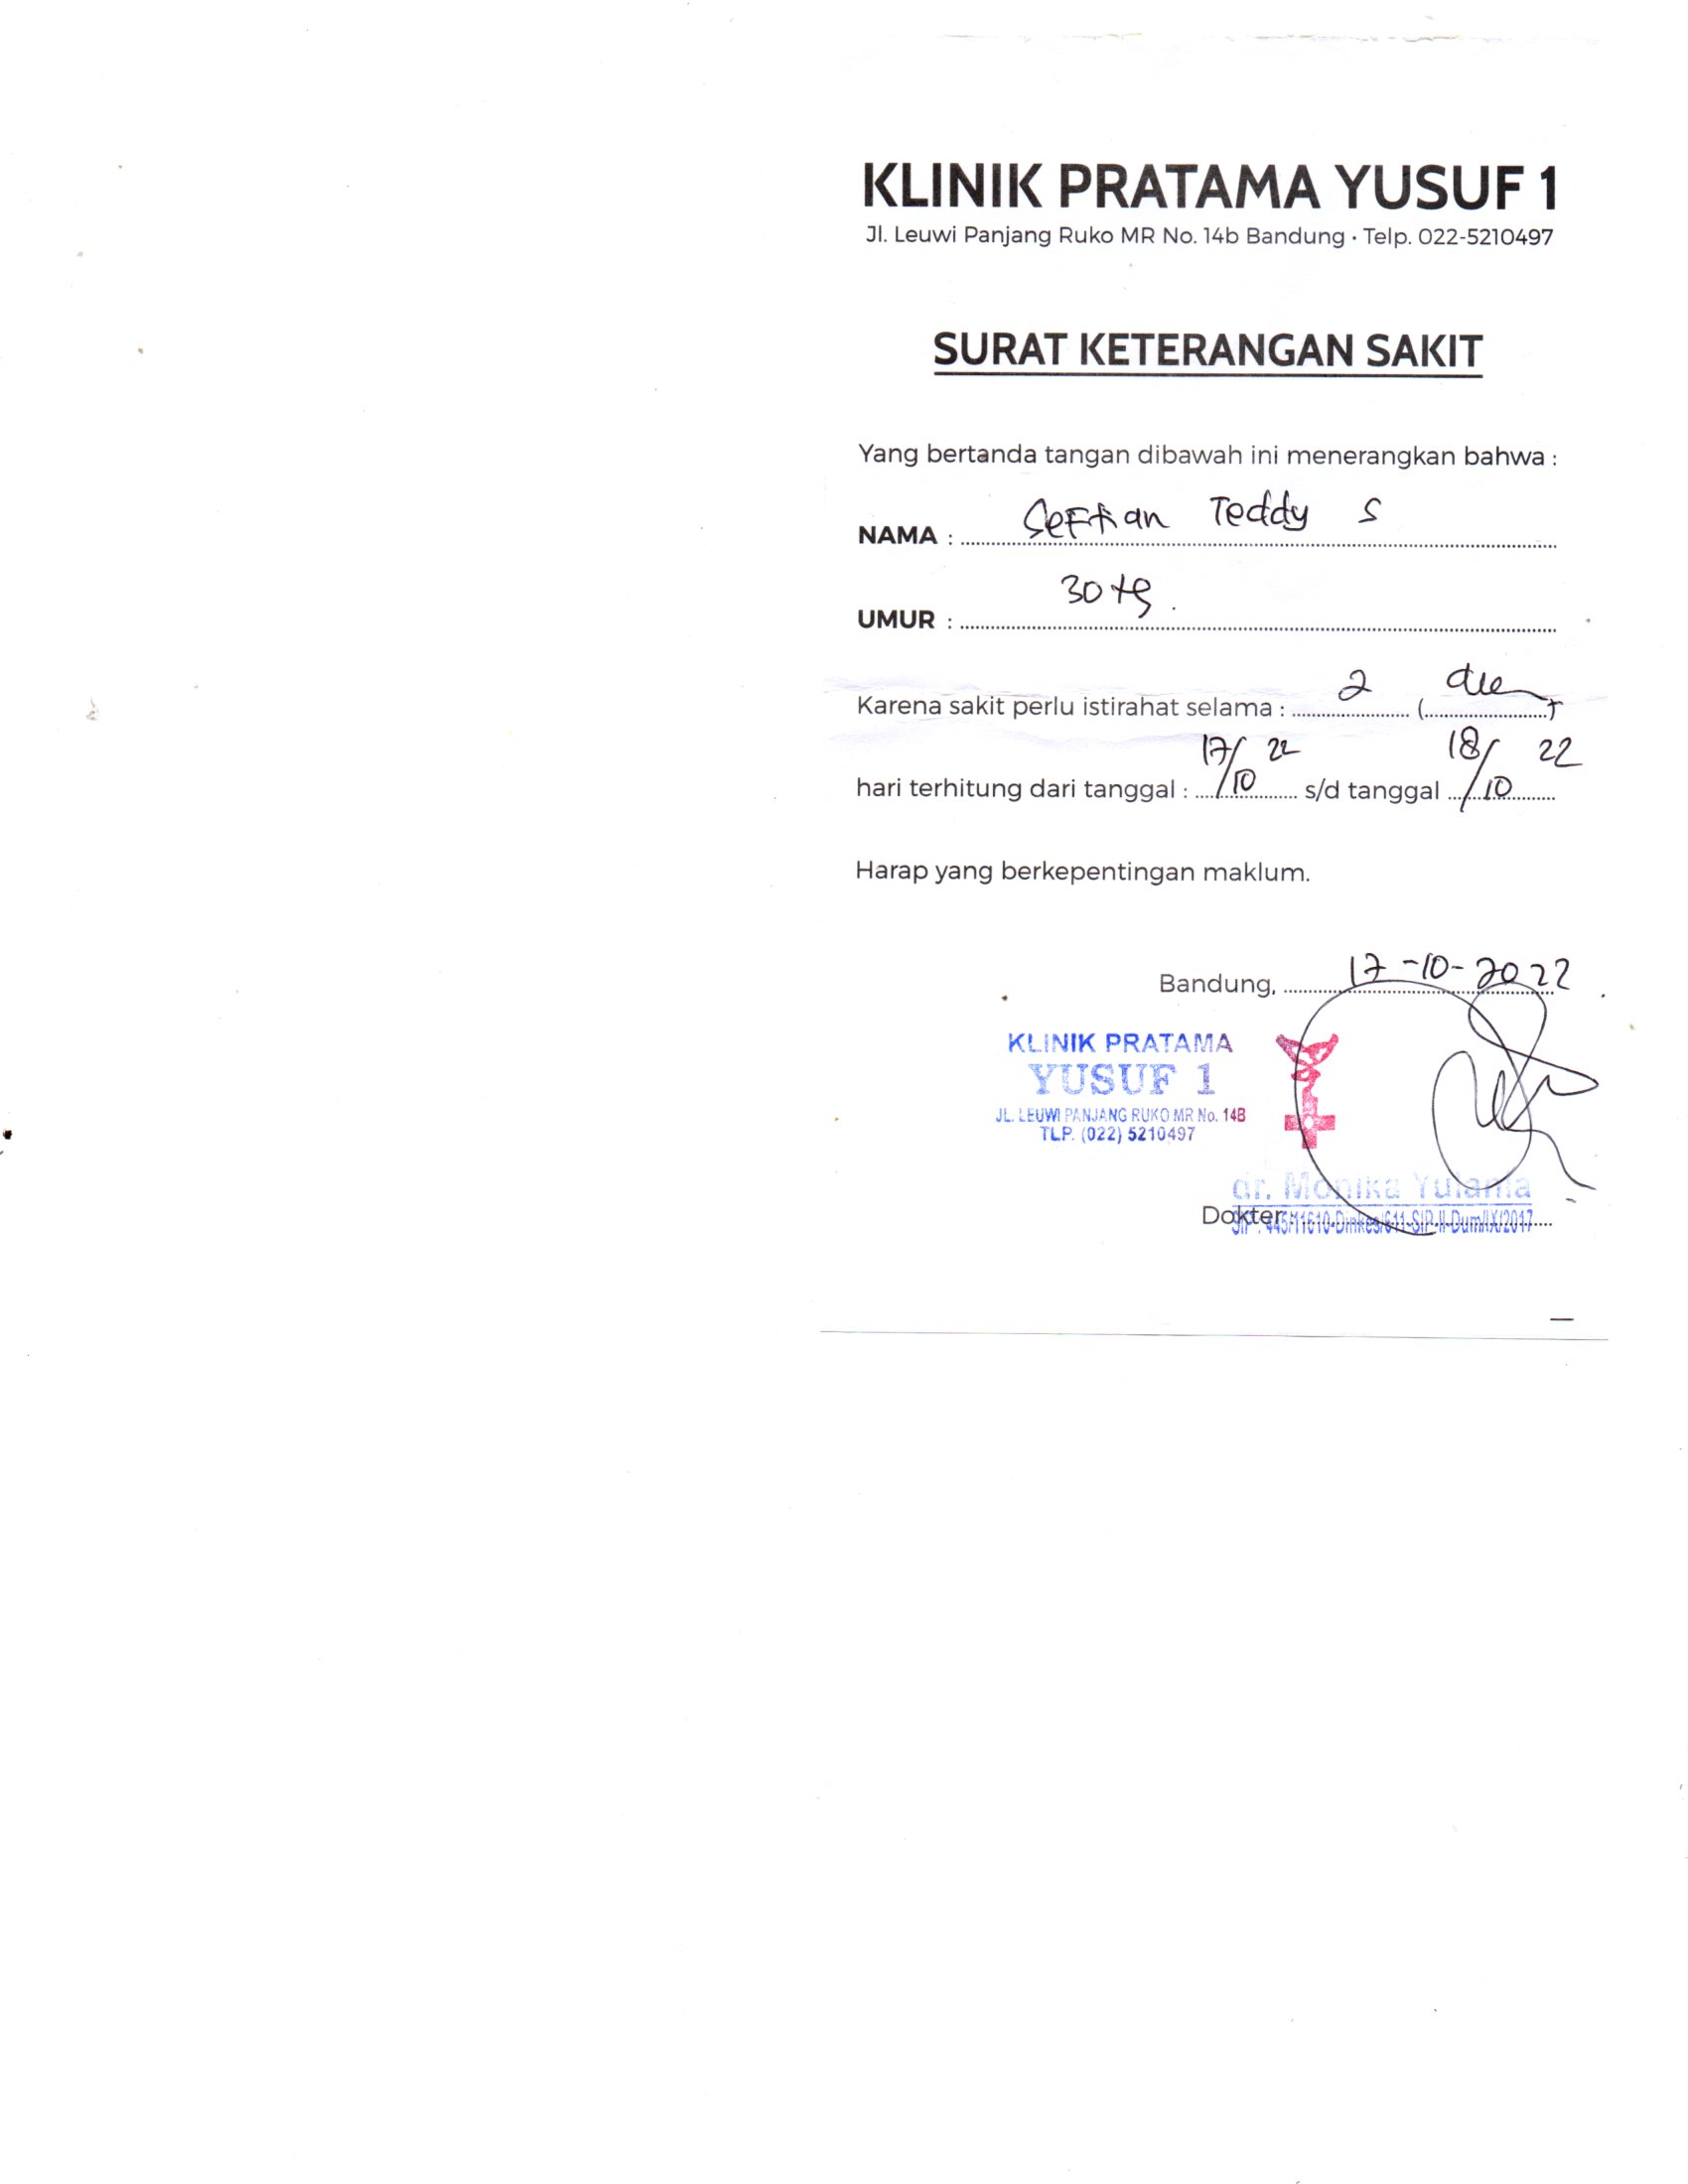 KLINIK PRATAMA YUSUF 1
Jl. Leuwi Panjang Ruko MR No. 14b Bandung • Telp. 022-5210497
SURAT KETERANGAN SAKIT
Yang bertanda tangan dibawah ini menerangkan bahwa :
NAMA : Seftian Teddy S
UMUR : 30 th
Karena sakit perlu istirahat selama : 2 (dua)
hari terhitung dari tanggal : 17/10 22 s/d tanggal 18/10 22
Harap yang berkepentingan maklum.
Bandung, 17-10-2022
KLINIK PRATAMA
YUSUF 1
JL. LEUWI PANJANG RUKO MR No. 14B
TLP. (022) 5210497
dr. Monika Yulania
Dokter
SIP : 445/11610-Dinkes/611-SIP-II-Dum/IX/2017